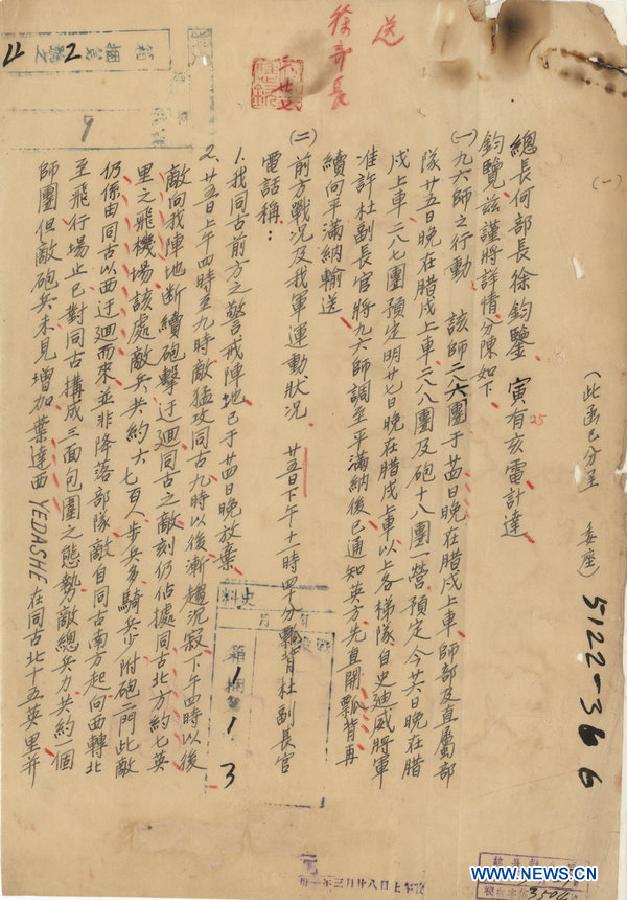 (一)
(此函已分呈 委座)
5122-366
總長何部長徐鈞鑒 寅有亥電計達
25
鈞覽茲謹將詳情分陳如下
(一)九六師之行動 該師二八六團于廿四日晚在腊戍上車師部及直屬部
隊廿五日晚在腊戍上車二八八團及砲十八團一營預定今廿六日晚在腊
戍上車二八七團預定明廿七日晚在腊戍上車以上各梯隊自史迪威將軍
准許杜副長官將九六師調至平滿納後已通知英方先直開瓢背再
續向平滿納輸送
(二)前方戰況及我軍運動狀況 廿五日下午十一時四十分瓢背杜副長官
電話稱:
1.我同古前方之警戒陣地已于廿四日晚放棄
2.廿五日上午四時至九時敵猛攻同古九時以後漸趨沉寂下午四時以後
敵向我陣地斷續砲擊迂迴同古之敵刻仍佔據同古北方約七英
里之飛機場該處敵兵共約六七百人步兵多騎兵少附砲二門此敵
仍係由同古以西迂迴而來並非降落部隊敵自同古南方起向西轉北
至飛行場止已對同古構成三面包圍之態勢敵總兵力共約一個
師團但敵砲兵未見增加葉達西YEDASHE在同古北十五英里并
送
徐部長
六廿七
箱 捆 號
2
9
史料
箱 捆 號
1 1 3
卅一年三月廿八日上午
3504
WWW.NEWS.CN